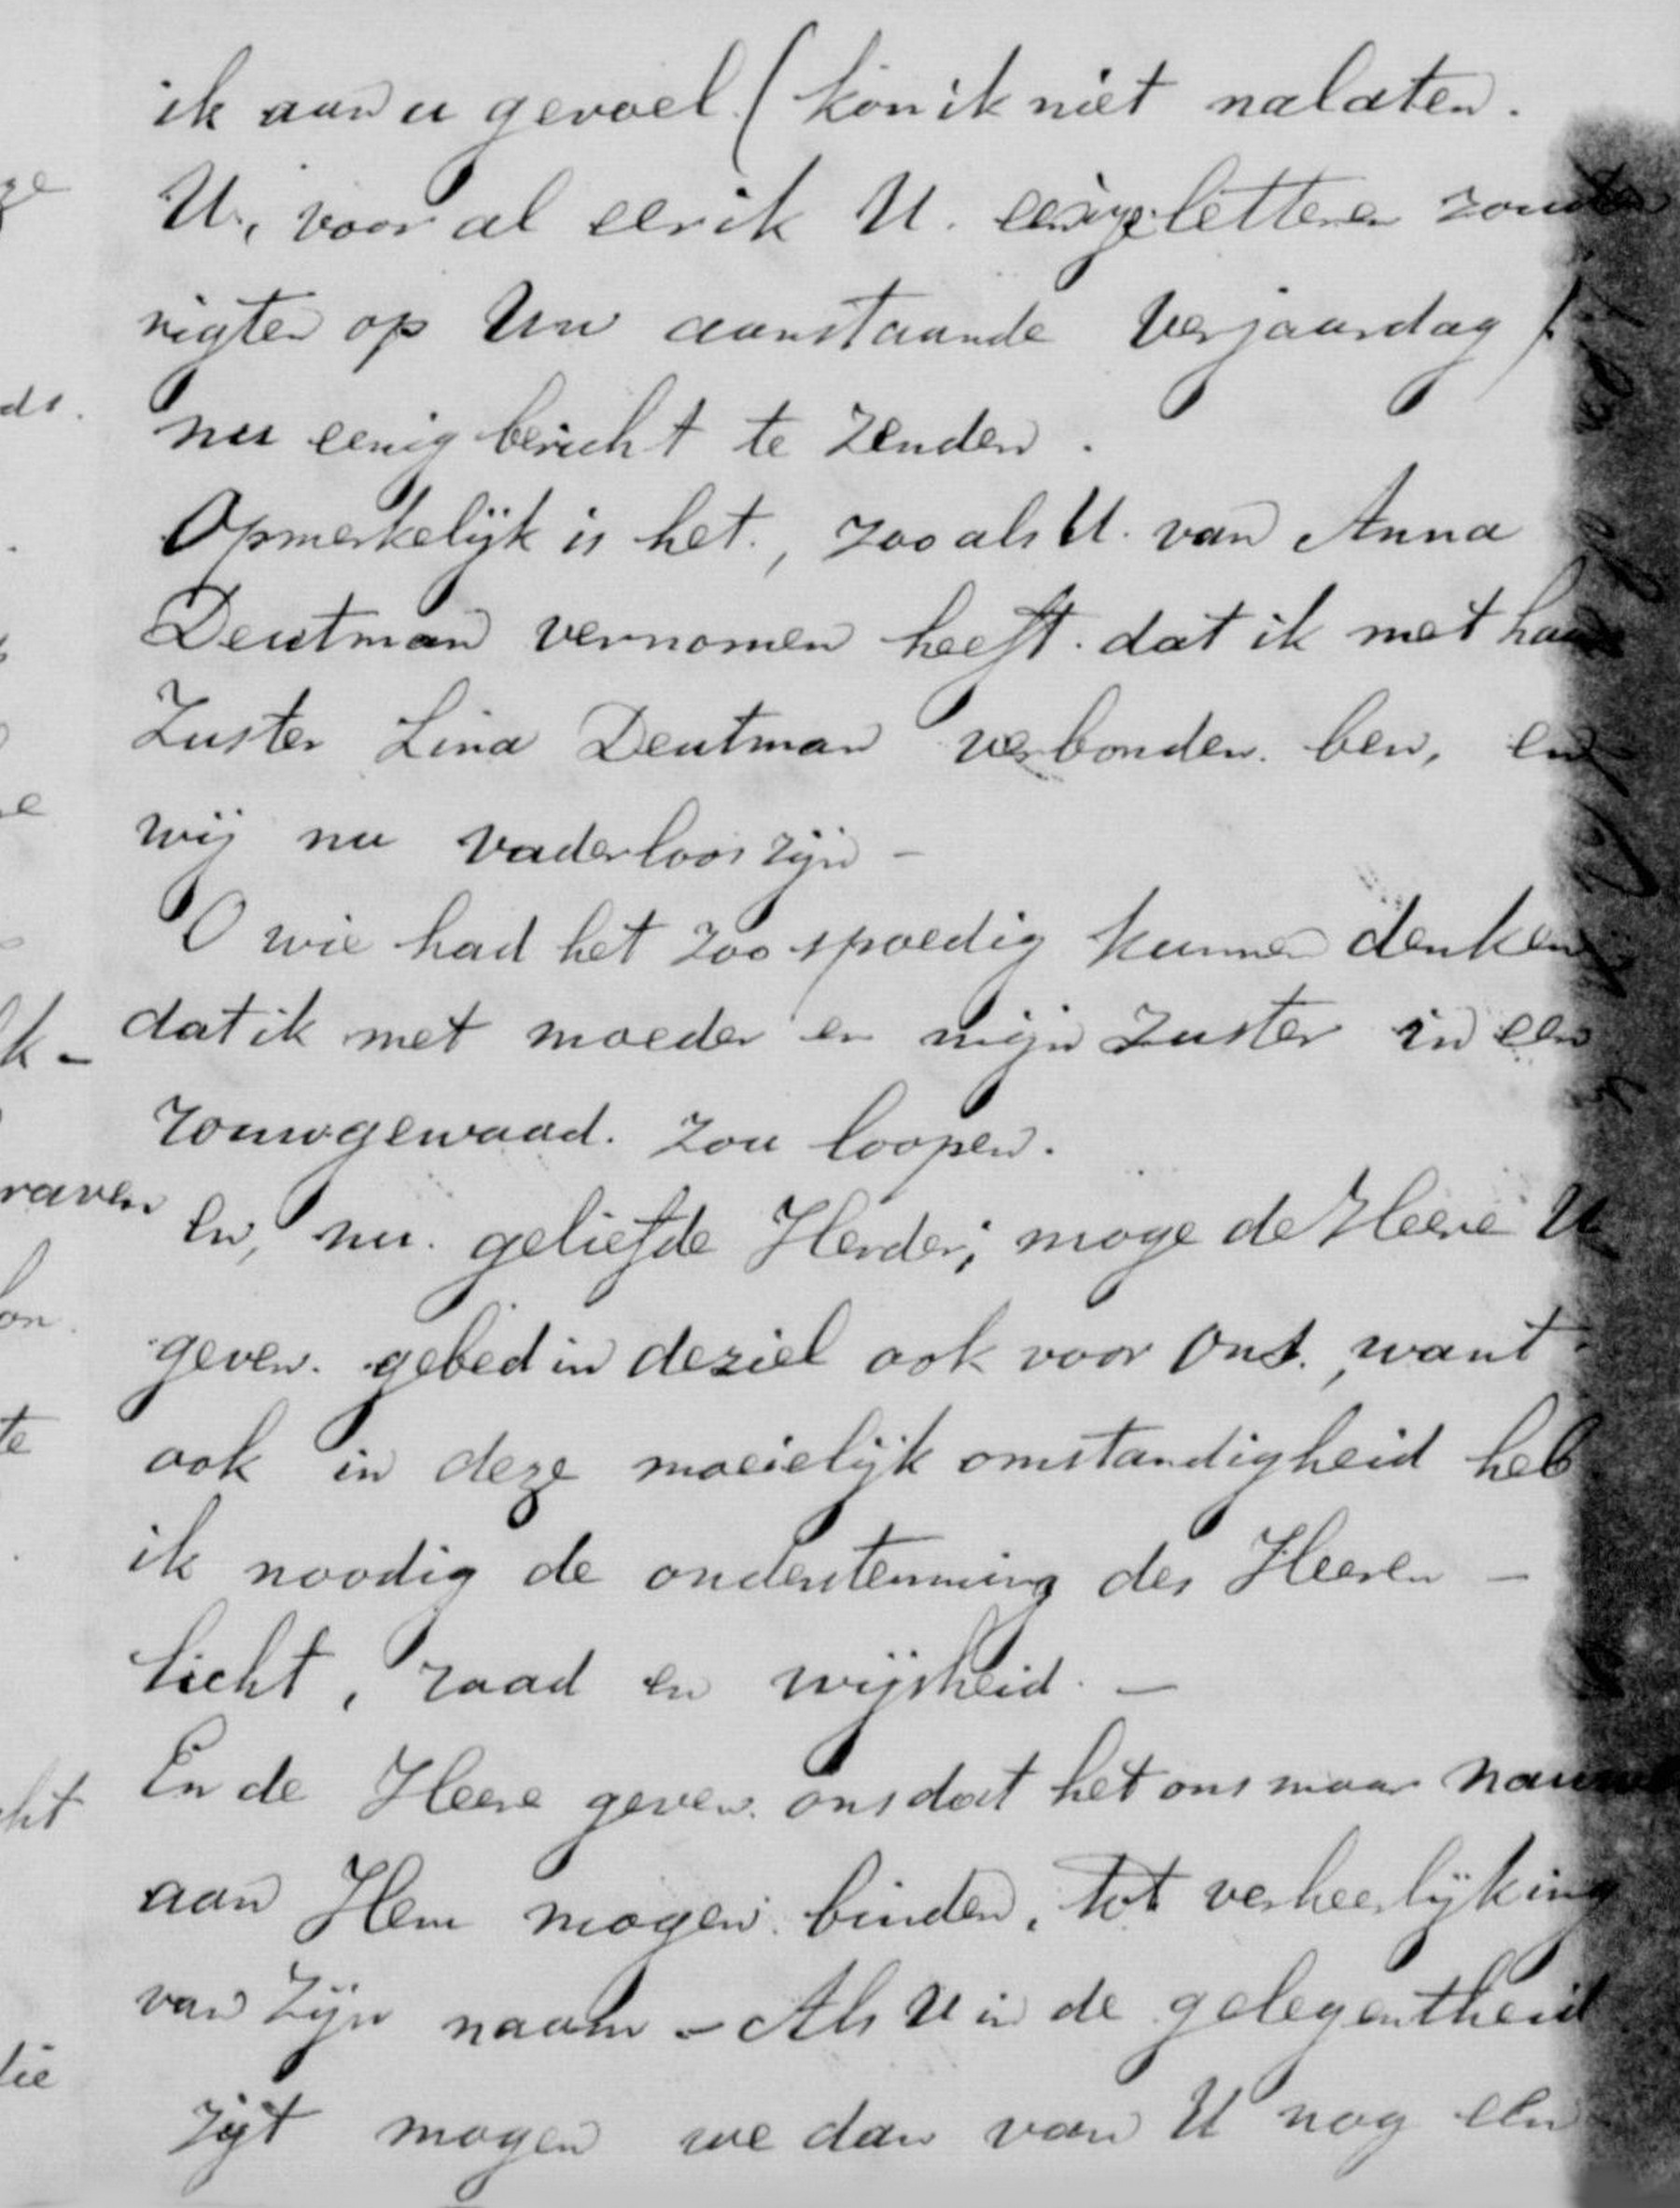 ik aan u gevoel (kon ik niet nalaten.
U, voor al eer ik U. eenige letteren zou
rigten op Uw aanstaande Verjaardag)
nu eenig bericht te zenden.
Opmerkelijk is het, zooals U. van Anna
Deutman vernomen heeft. dat ik met haar
Zuster Lina Deutman verbonden. ben, en
wij nu vaderloos zijn -
O wie had het zoo spoedig kunnen denken
dat ik met moeder en mijn Zuster in een
rouwgewaad. zou loopen.
En, nu. geliefde Herder; moge de Heere U
geven. gebed in deziel ook voor ons., want
ook in deze moeielijk omstandigheid heb
ik noodig de ondersteuning des Heeren -
licht, raad en wijsheid. -
En de Heere geven. ons dat het ons maar nauw
aan Hem mogen binden, tot verheerlijking
van Zijn naam - Als U in de gelegentheid
zijt mogen we dan van U nog een